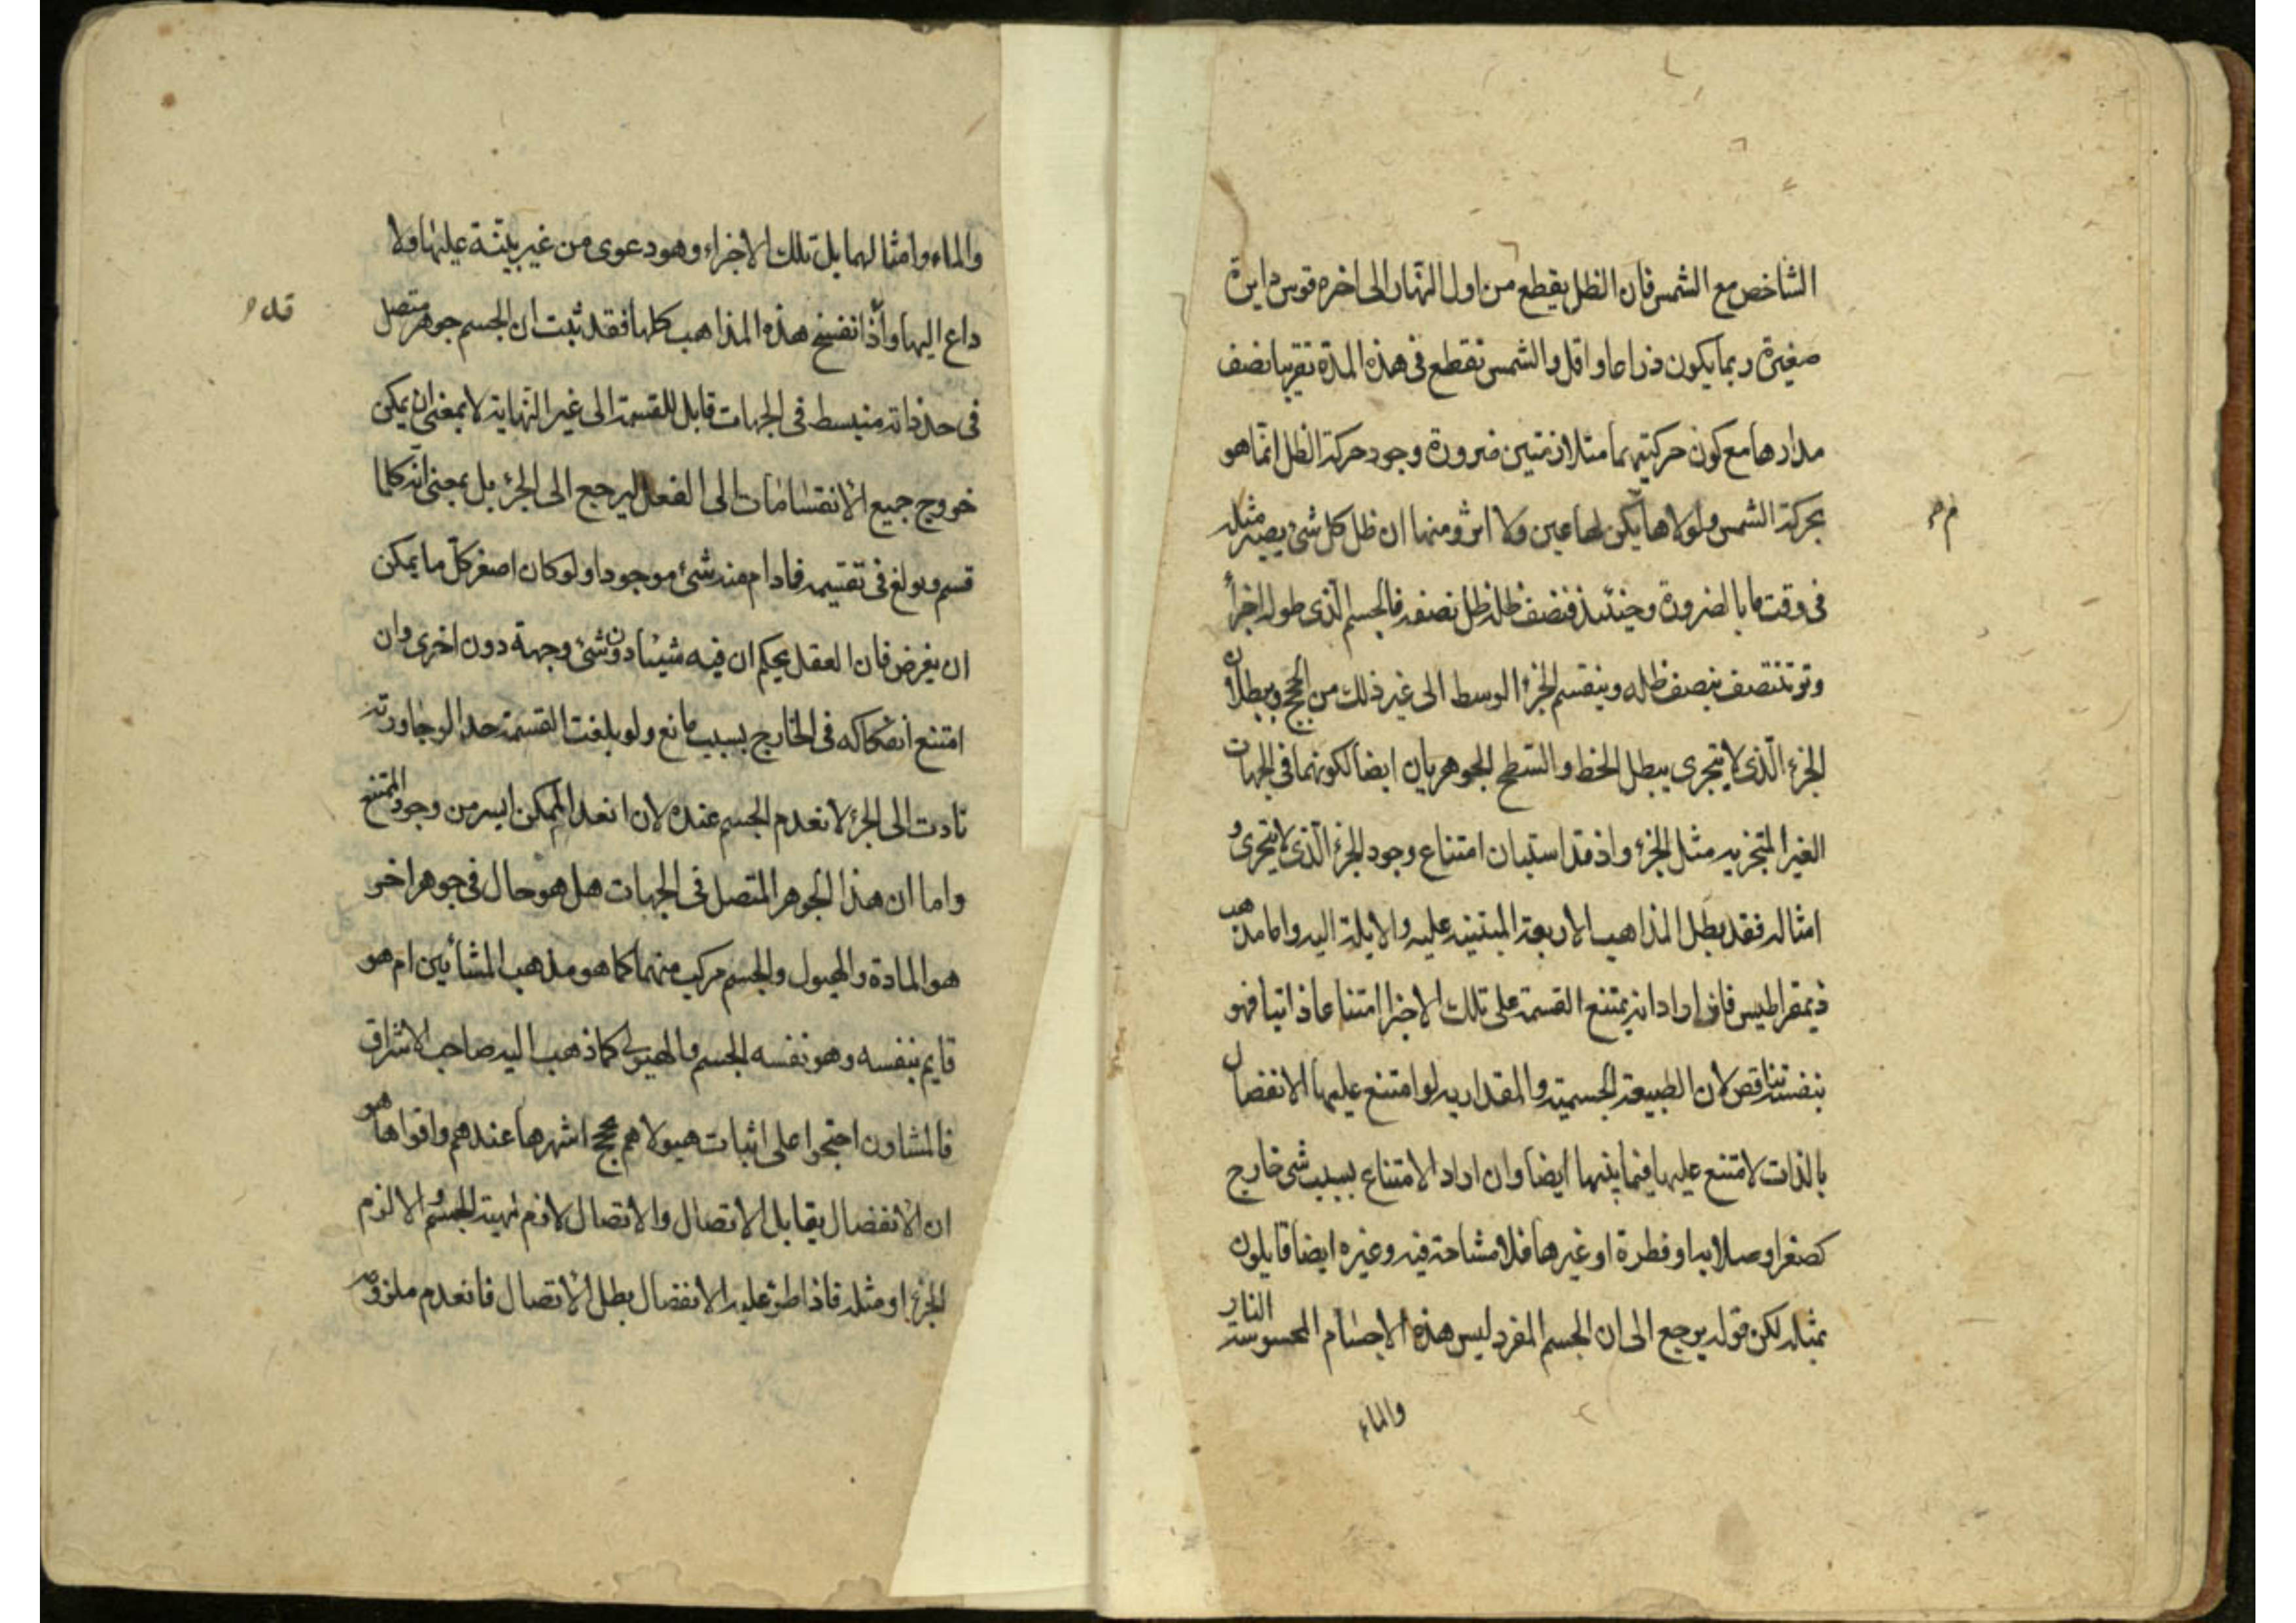 الشاخص مع الشمس فان الظل يقطع من اول النهار الى اخره قوس دايرة
صغيرة ربما يكون ذراعا او اقل والشمس تقطع فى هذه المدة تقريبا نصف
مدارها مع كون حركتيهما متلازمتين ضرورة وجود حركة الظل انما هو
بحركة الشمس ولولاها يكن لها عين ولا اثر ومنها ان ظل كل شئ يصير مثله
فى وقت ما بالضرورة وحينئذ فنصف ظله ظل نصفه فالجسم الذى طوله اجزأ
وتر تنتصف بنصف ظله وينقسم الجزء الوسط الى غير ذلك من الحجج وببطلان
الجزء الذى لا يتجرى يبطل الخط والسطح الجوهريان ايضا لكونهما فى الجهات
الغير المتجزيه مثل الجزء واذ قد استبان امتناع وجود الجزء الذى لا يتجرى و
امثاله فقد بطل المذاهب الاربعة المبتنيه عليه والايلة اليه واما مذهب
ذيمقراطيس فانه ان اراد انه يمتنع القسمة على تلك الاجزا امتناعا ذاتيا فهو
بنفسه تناقض لان الطبيعة الجسمية والمقداريه لو امتنع عليها الانفصال
بالذات لامتنع عليها فيما بينها ايضا وان اراد الامتناع بسبب شئ خارج
كصغر او صلابه او فطرة او غيرها فلا مشاحة فيه وغيره ايضا قايلون
بمثله لكن قوله يرجع الى ان الجسم المفرد ليس هذه الاجسام المحسوسة النار
والماء
والماء وامثالهما بل تلك الاجزاء وهو دعوى من غير بينة عليها ولا
داع اليها واذا انفسخ هذه المذاهب كلها فقد ثبت ان الجسم جوهر متصل
فى حد ذاته منبسط فى الجهات قابل للقسمة الى غير النهاية لا بمعنى ان يمكن
خروج جميع الانقسامات الى الفعل ليرجع الى الجزء بل بمعنى انه كلما
قسم وبولغ فى تقسيمه فادام منه شئ موجودا ولو كان اصغر كل ما يمكن
ان يفرض فان العقل يحكم ان فيه شيئا دون شئ وجهة دون اخرى وان
امتنع انفكاكه فى الخارج بسبب مانع ولو بلغت القسمة حدا لو جاورته
تادت الى الجزء لانعدم الجسم عنده لان انعدام الممكن ايسر من وجود الممتنع
واما ان هذا الجوهر المتصل فى الجهات هل هو حال فى جوهر اخر
هو المادة والهيولى والجسم مركب منهما كما هو مذهب المشأيين ام هو
قايم بنفسه وهو نفسه الجسم والهيولى كما ذهب اليه صاحب الاشراق
فالمشاون احتجوا على اثبات هيولاهم بحجج اشهرها عندهم واقواها هو
ان الانفصال يقابل الاتصال والاتصال لازم لمهية الجسم والا لزم
الجزء او مثله فاذا طرؤ عليه الانفصال بطل الاتصال فانعدم ملزومه